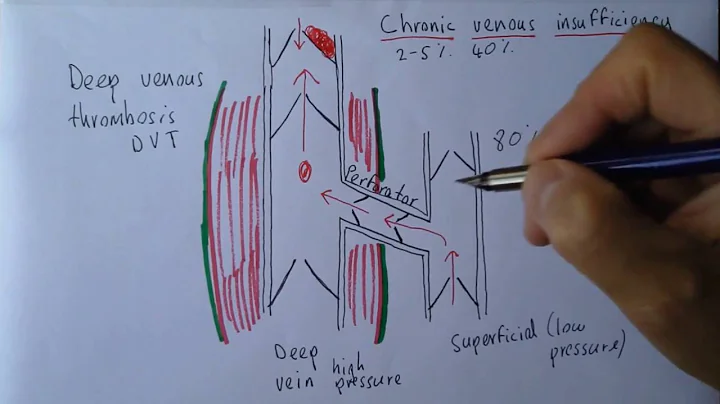 Chronic venous insufficiency
2-5% 40%
Deep venous
thrombosis
DVT
80%
Perforator
Superficial (low
pressure)
Deep
vein high
pressure